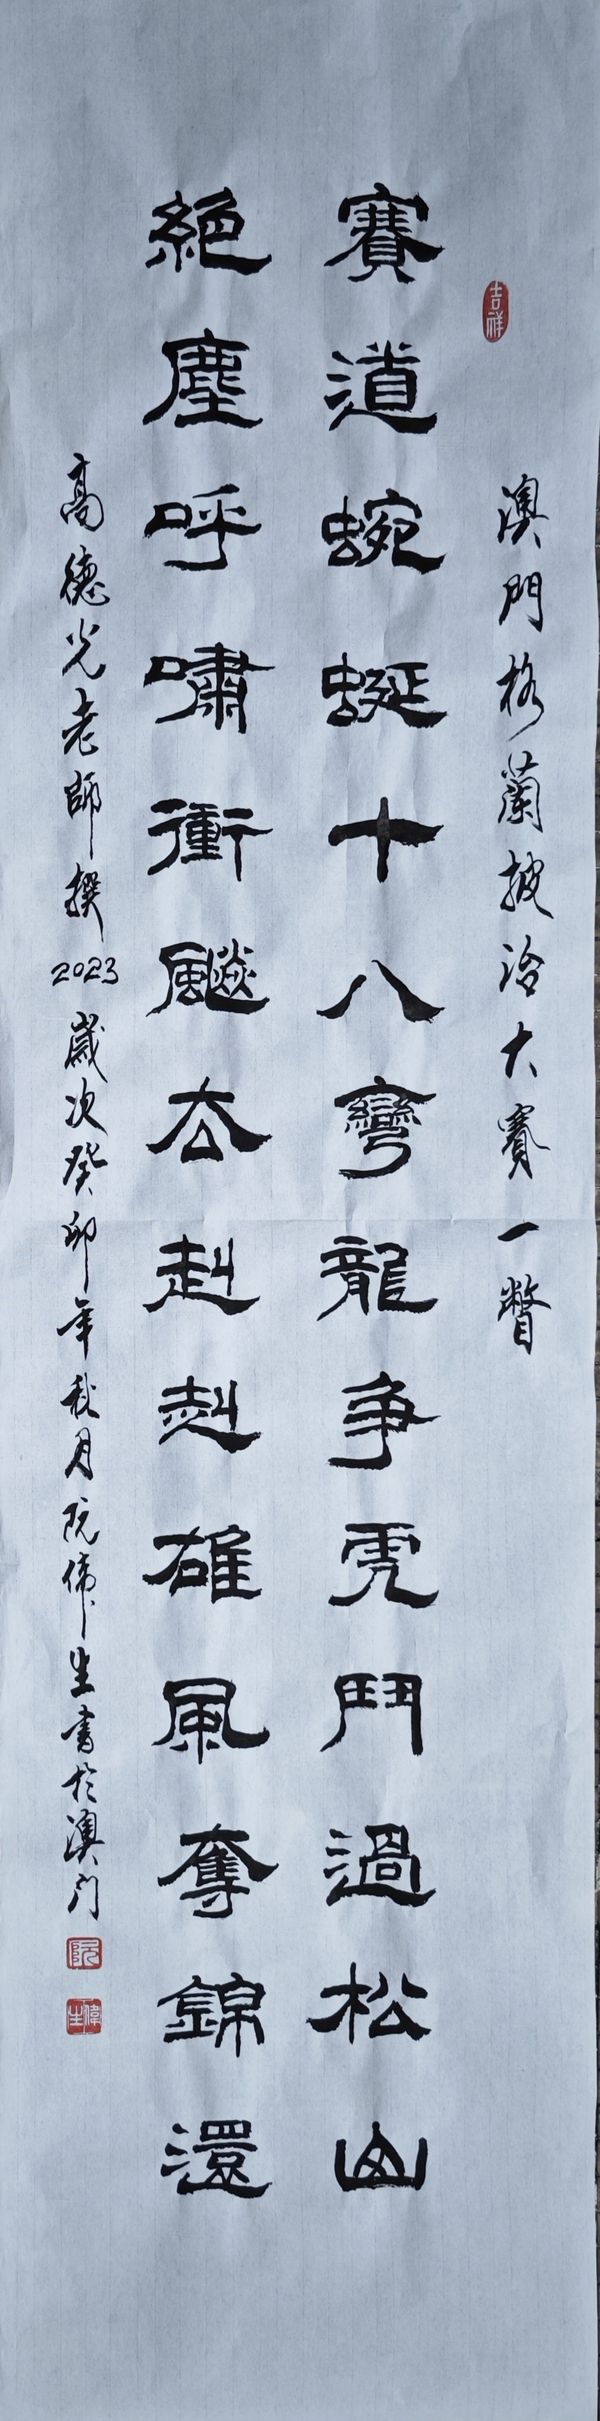 吉祥
澳門格蘭披治大賽一瞥
賽道蜿蜒十八彎龍爭虎鬥過松山
絕塵呼嘯衝飈去赳赳雄風奪錦還
高德光老師撰2023歲次癸卯年秋月阮偉生書於澳门
阮
偉生